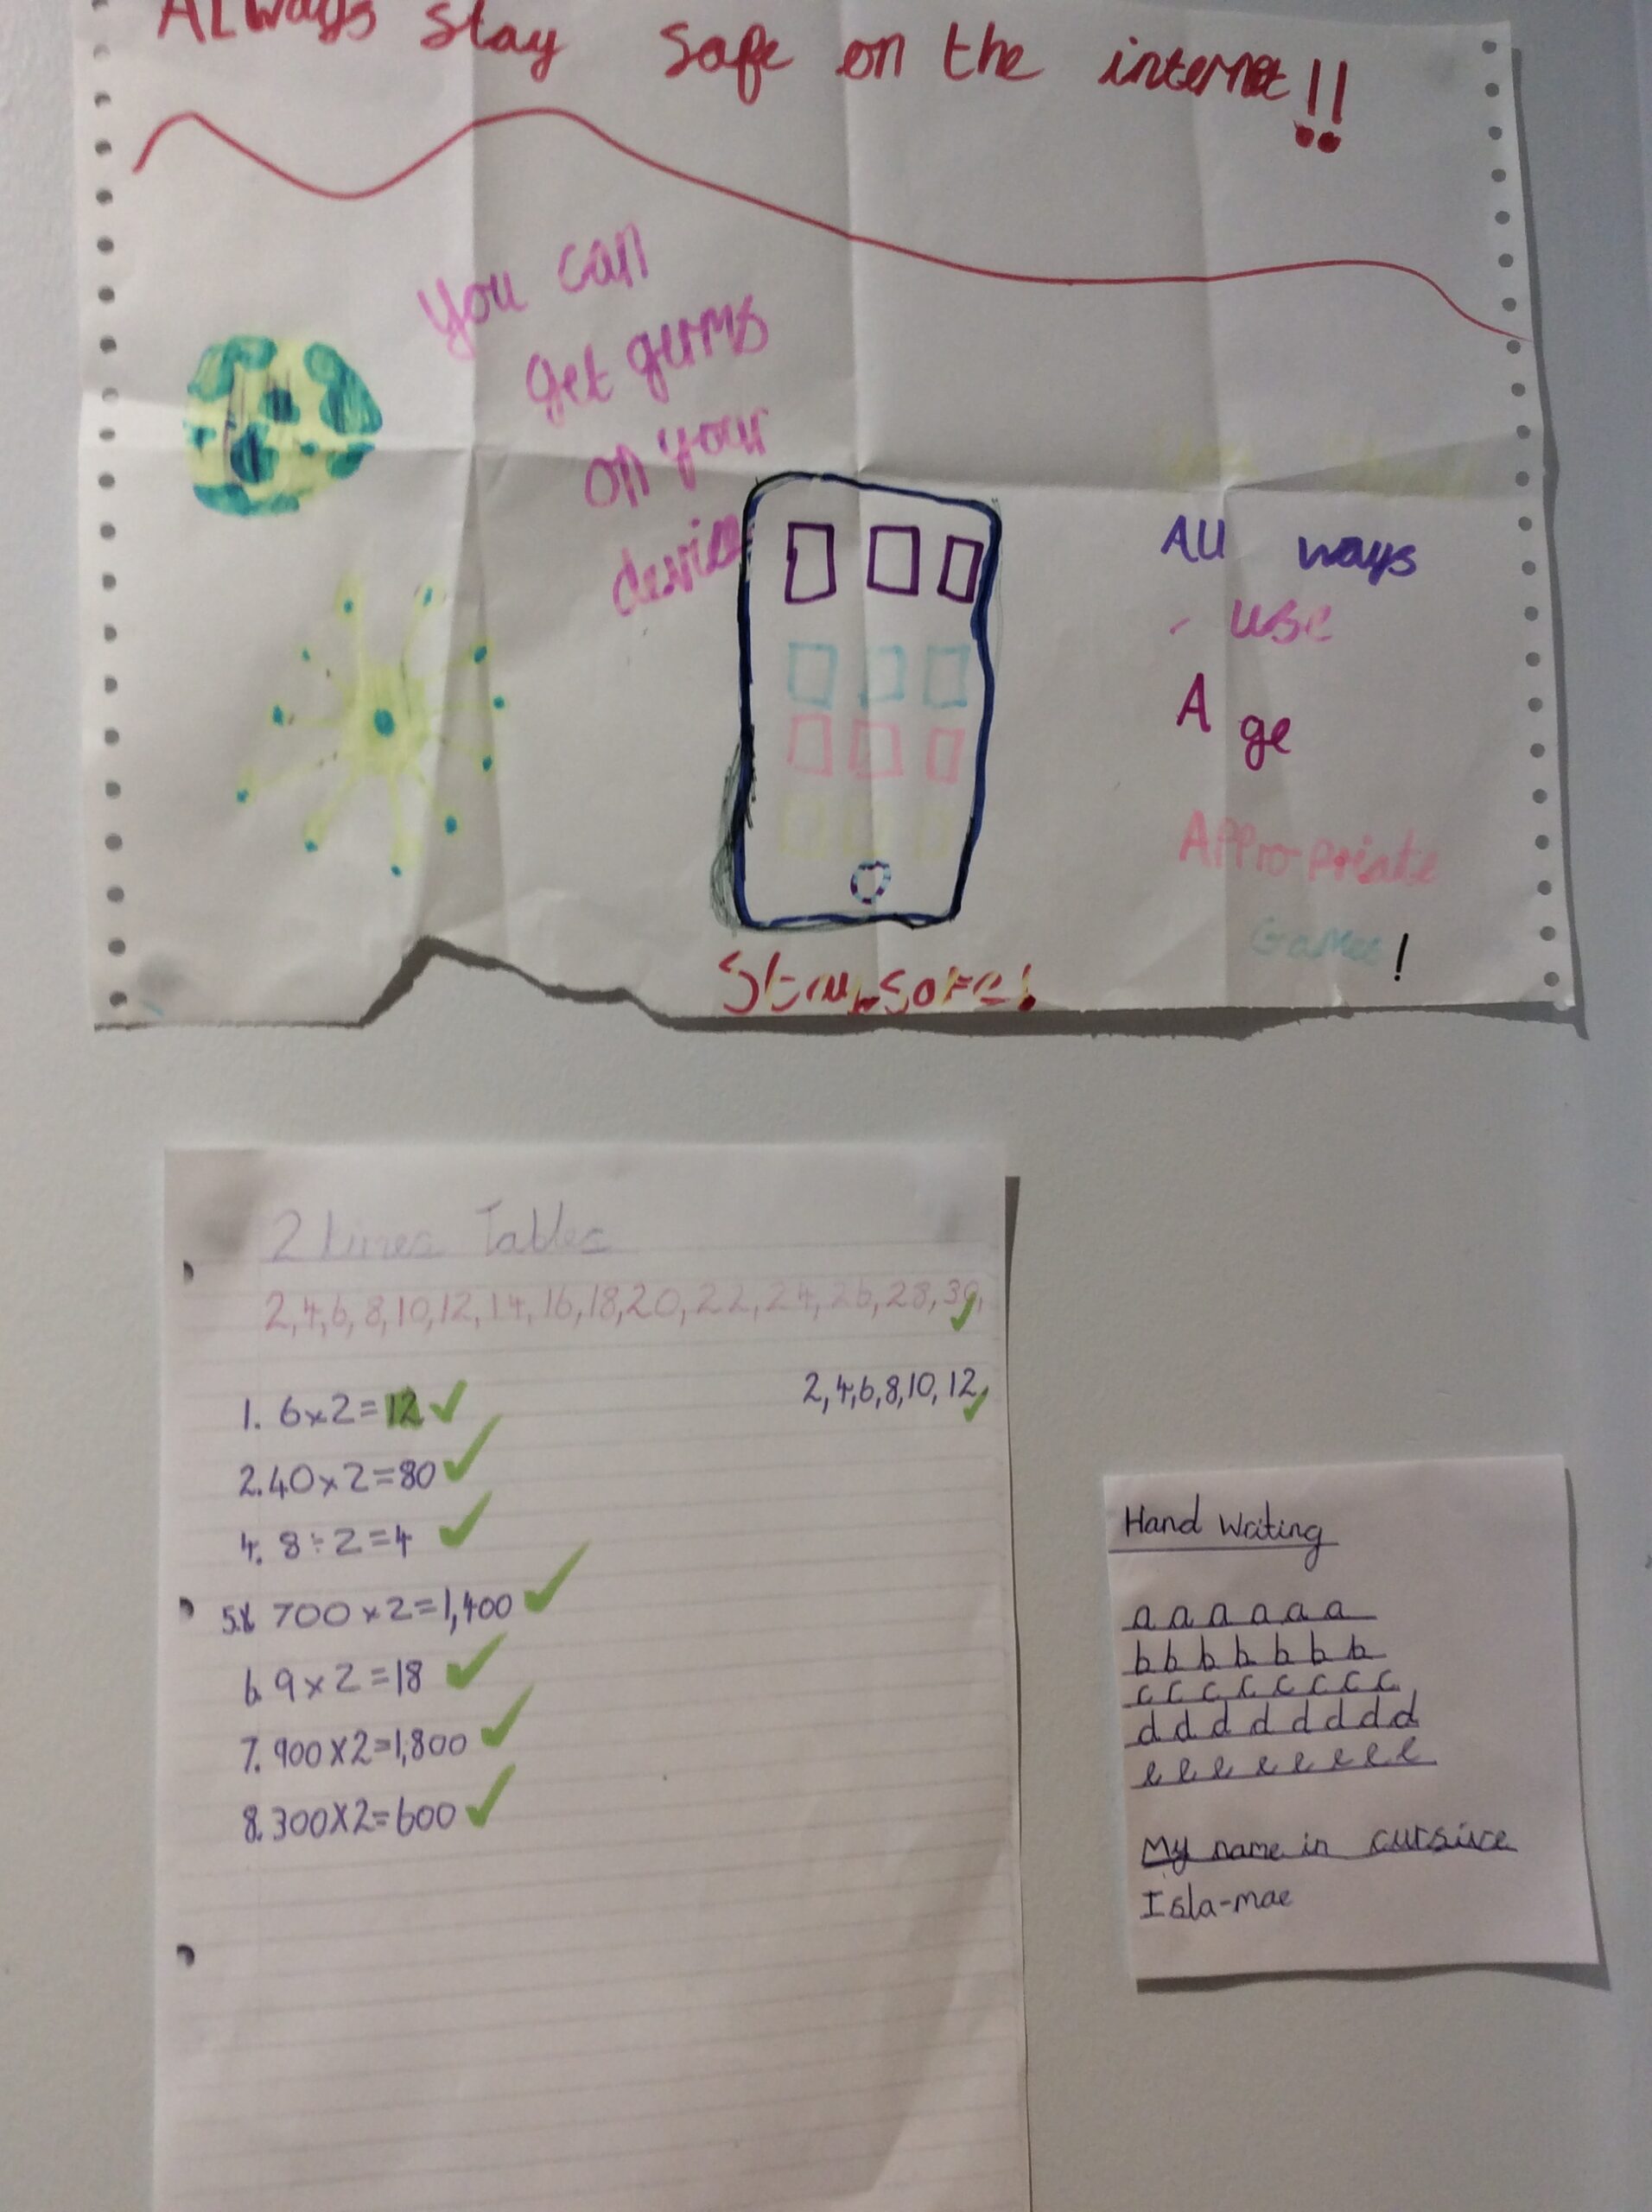 Always stay safe on the internet!!
You can
get gurms
on your
device
All ways
- use
A ge
Appro-priate
Games!
Stay safe!
2 times Tables
2,4,6,8,10,12,14,16,18,20,22,24,26,28,30,
2,4,6,8,10,12,
1. 6×2=12 ✓
2. 40×2=80 ✓
4. 8÷2=4 ✓
5. 700×2=1,400 ✓
6. 9×2=18 ✓
7. 900×2=1,800 ✓
8. 300×2=600 ✓
Hand Writing
a a a a a a
b b b b b b b
c c c c c c c c
d d d d d d d d
e e e e e e e e
My name in cursive
Isla-mae